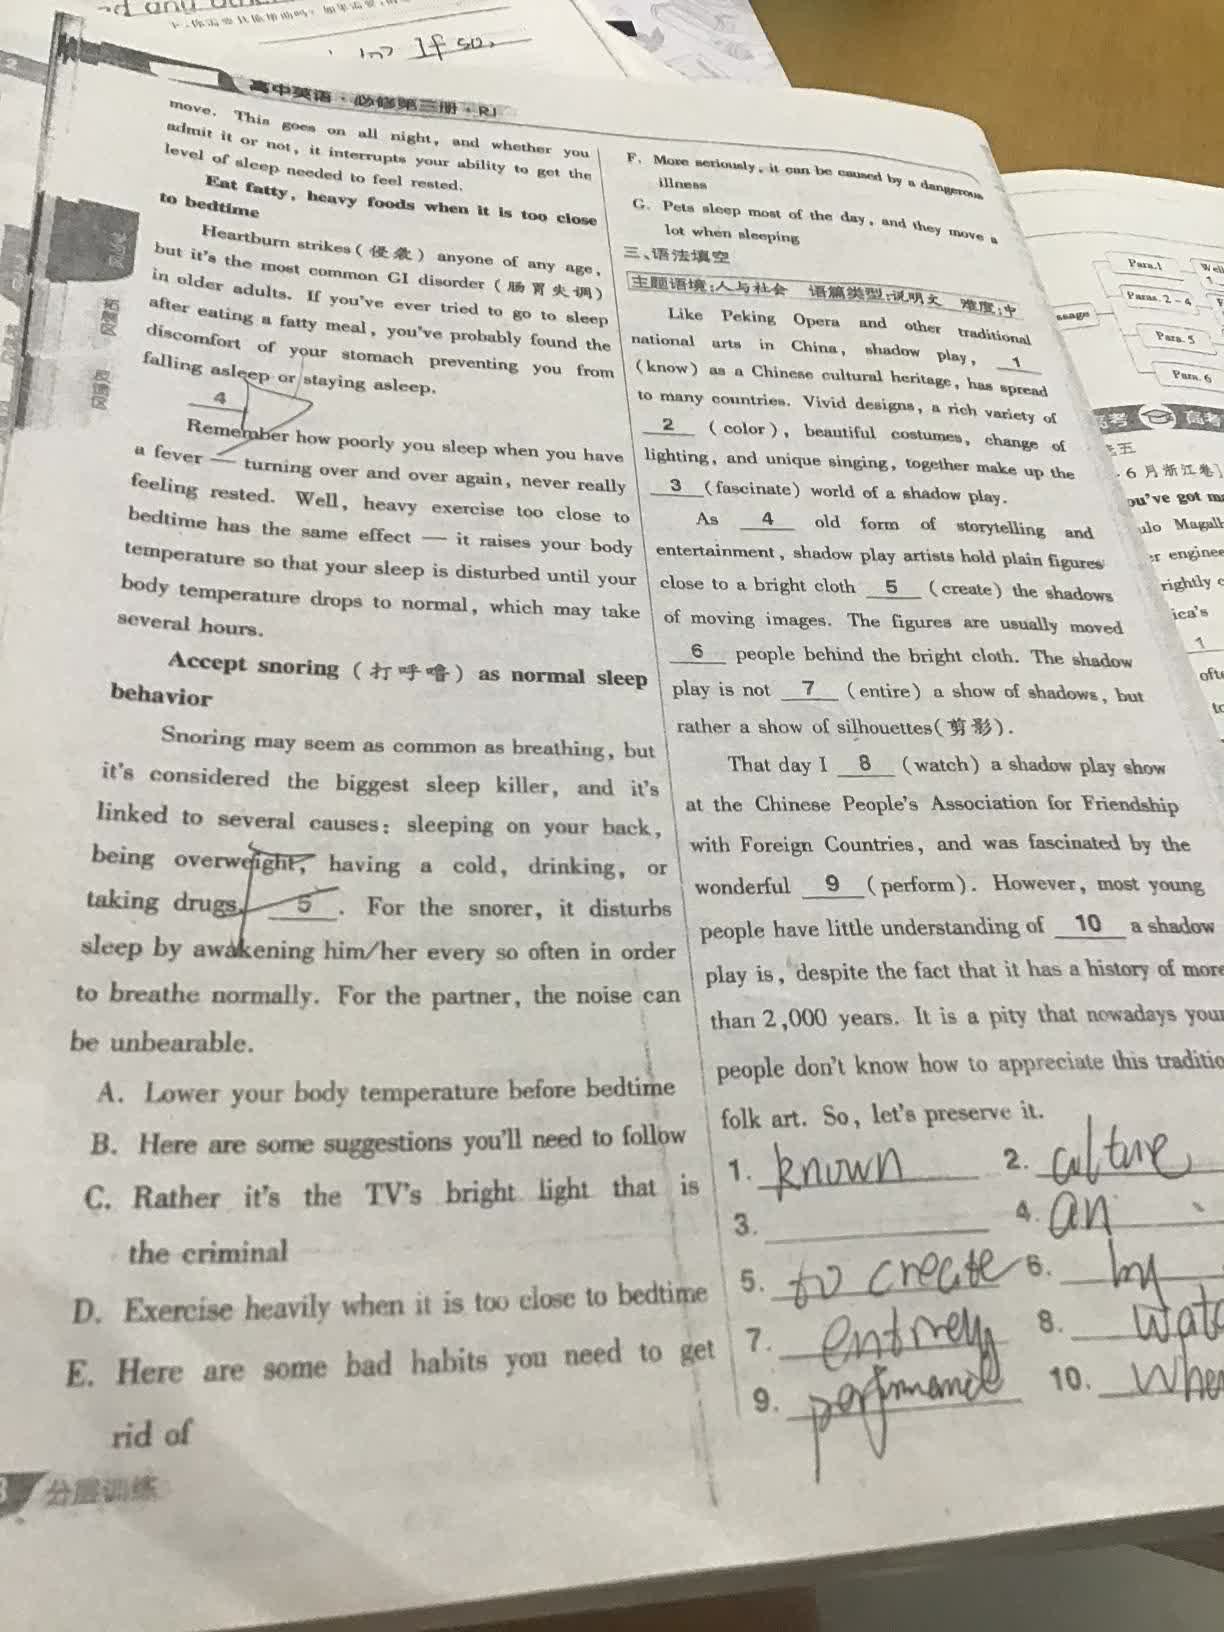 If so,
高中英语·必修第三册·RJ
move. This goes on all night, and whether you
admit it or not, it interrupts your ability to get the
level of sleep needed to feel rested.
Eat fatty, heavy foods when it is too close
to bedtime
Heartburn strikes(侵袭) anyone of any age,
but it's the most common GI disorder (肠胃失调)
in older adults. If you've ever tried to go to sleep
after eating a fatty meal, you've probably found the
discomfort of your stomach preventing you from
falling asleep or staying asleep.
4
Remember how poorly you sleep when you have
a fever — turning over and over again, never really
feeling rested. Well, heavy exercise too close to
bedtime has the same effect — it raises your body
temperature so that your sleep is disturbed until your
body temperature drops to normal, which may take
several hours.
Accept snoring (打呼噜) as normal sleep
behavior
Snoring may seem as common as breathing, but
it's considered the biggest sleep killer, and it's
linked to several causes: sleeping on your back,
being overweight, having a cold, drinking, or
taking drugs. 5 . For the snorer, it disturbs
sleep by awakening him/her every so often in order
to breathe normally. For the partner, the noise can
be unbearable.
A. Lower your body temperature before bedtime
B. Here are some suggestions you'll need to follow
C. Rather it's the TV's bright light that is
the criminal
D. Exercise heavily when it is too close to bedtime
E. Here are some bad habits you need to get
rid of
分层训练
F. More seriously, it can be caused by a dangerous
illness
G. Pets sleep most of the day, and they move a
lot when sleeping
三、语法填空
主题语境:人与社会 语篇类型:说明文 难度:中
Like Peking Opera and other traditional
national arts in China, shadow play, 1
(know) as a Chinese cultural heritage, has spread
to many countries. Vivid designs, a rich variety of
2 (color), beautiful costumes, change of
lighting, and unique singing, together make up the
3 (fascinate) world of a shadow play.
As 4 old form of storytelling and
entertainment, shadow play artists hold plain figures
close to a bright cloth 5 (create) the shadows
of moving images. The figures are usually moved
6 people behind the bright cloth. The shadow
play is not 7 (entire) a show of shadows, but
rather a show of silhouettes(剪影).
That day I 8 (watch) a shadow play show
at the Chinese People's Association for Friendship
with Foreign Countries, and was fascinated by the
wonderful 9 (perform). However, most young
people have little understanding of 10 a shadow
play is, despite the fact that it has a history of more
than 2,000 years. It is a pity that nowadays your
people don't know how to appreciate this traditio
folk art. So, let's preserve it.
1. known 2. culture
3. 4. an
5. to create 6. by
7. entirely 8. watc
9. performance 10. whe
Para.1
Paras. 2-4
Para. 5
Para. 6
高考
6月浙江卷]
ou've got m
ulo Magalh
er enginee
rightly c
ica's
1
ofte
to